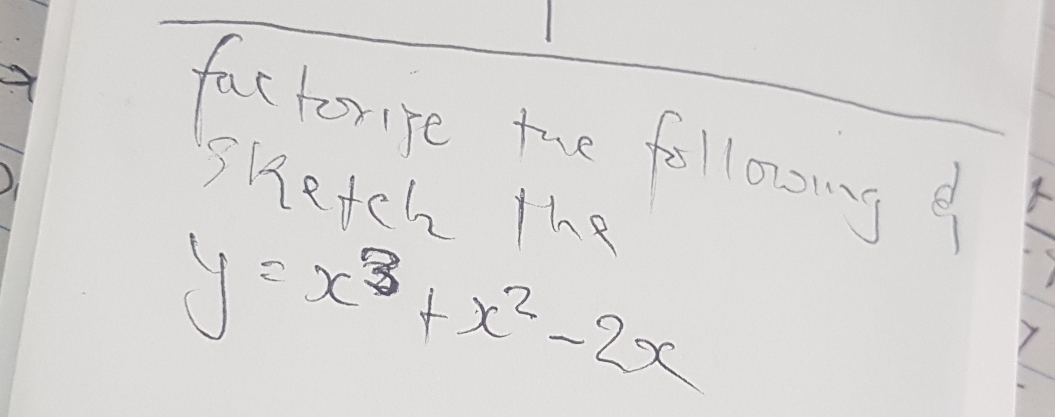 factorize the following &
sketch the
y = x³ + x² - 2x